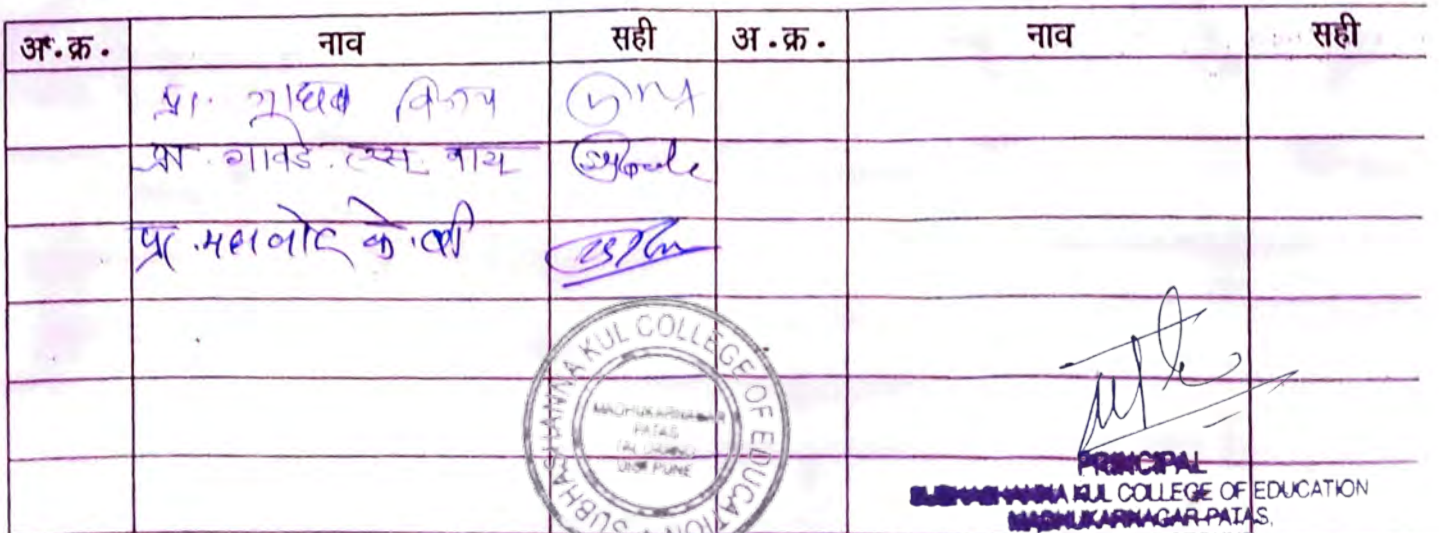 अ.क्र. नाव सही अ.क्र. नाव सही
प्रा. विजय
प्रा. गावडे. एस. वाय
प्रा. के. बी
SUBHASHANNA KUL COLLEGE OF EDUCATION
MADHUKARNAGAR
PATAS
TAL DAUND
DIST PUNE
PRINCIPAL
SUBHASHANNA KUL COLLEGE OF EDUCATION
MADHUKARNAGAR-PATAS.